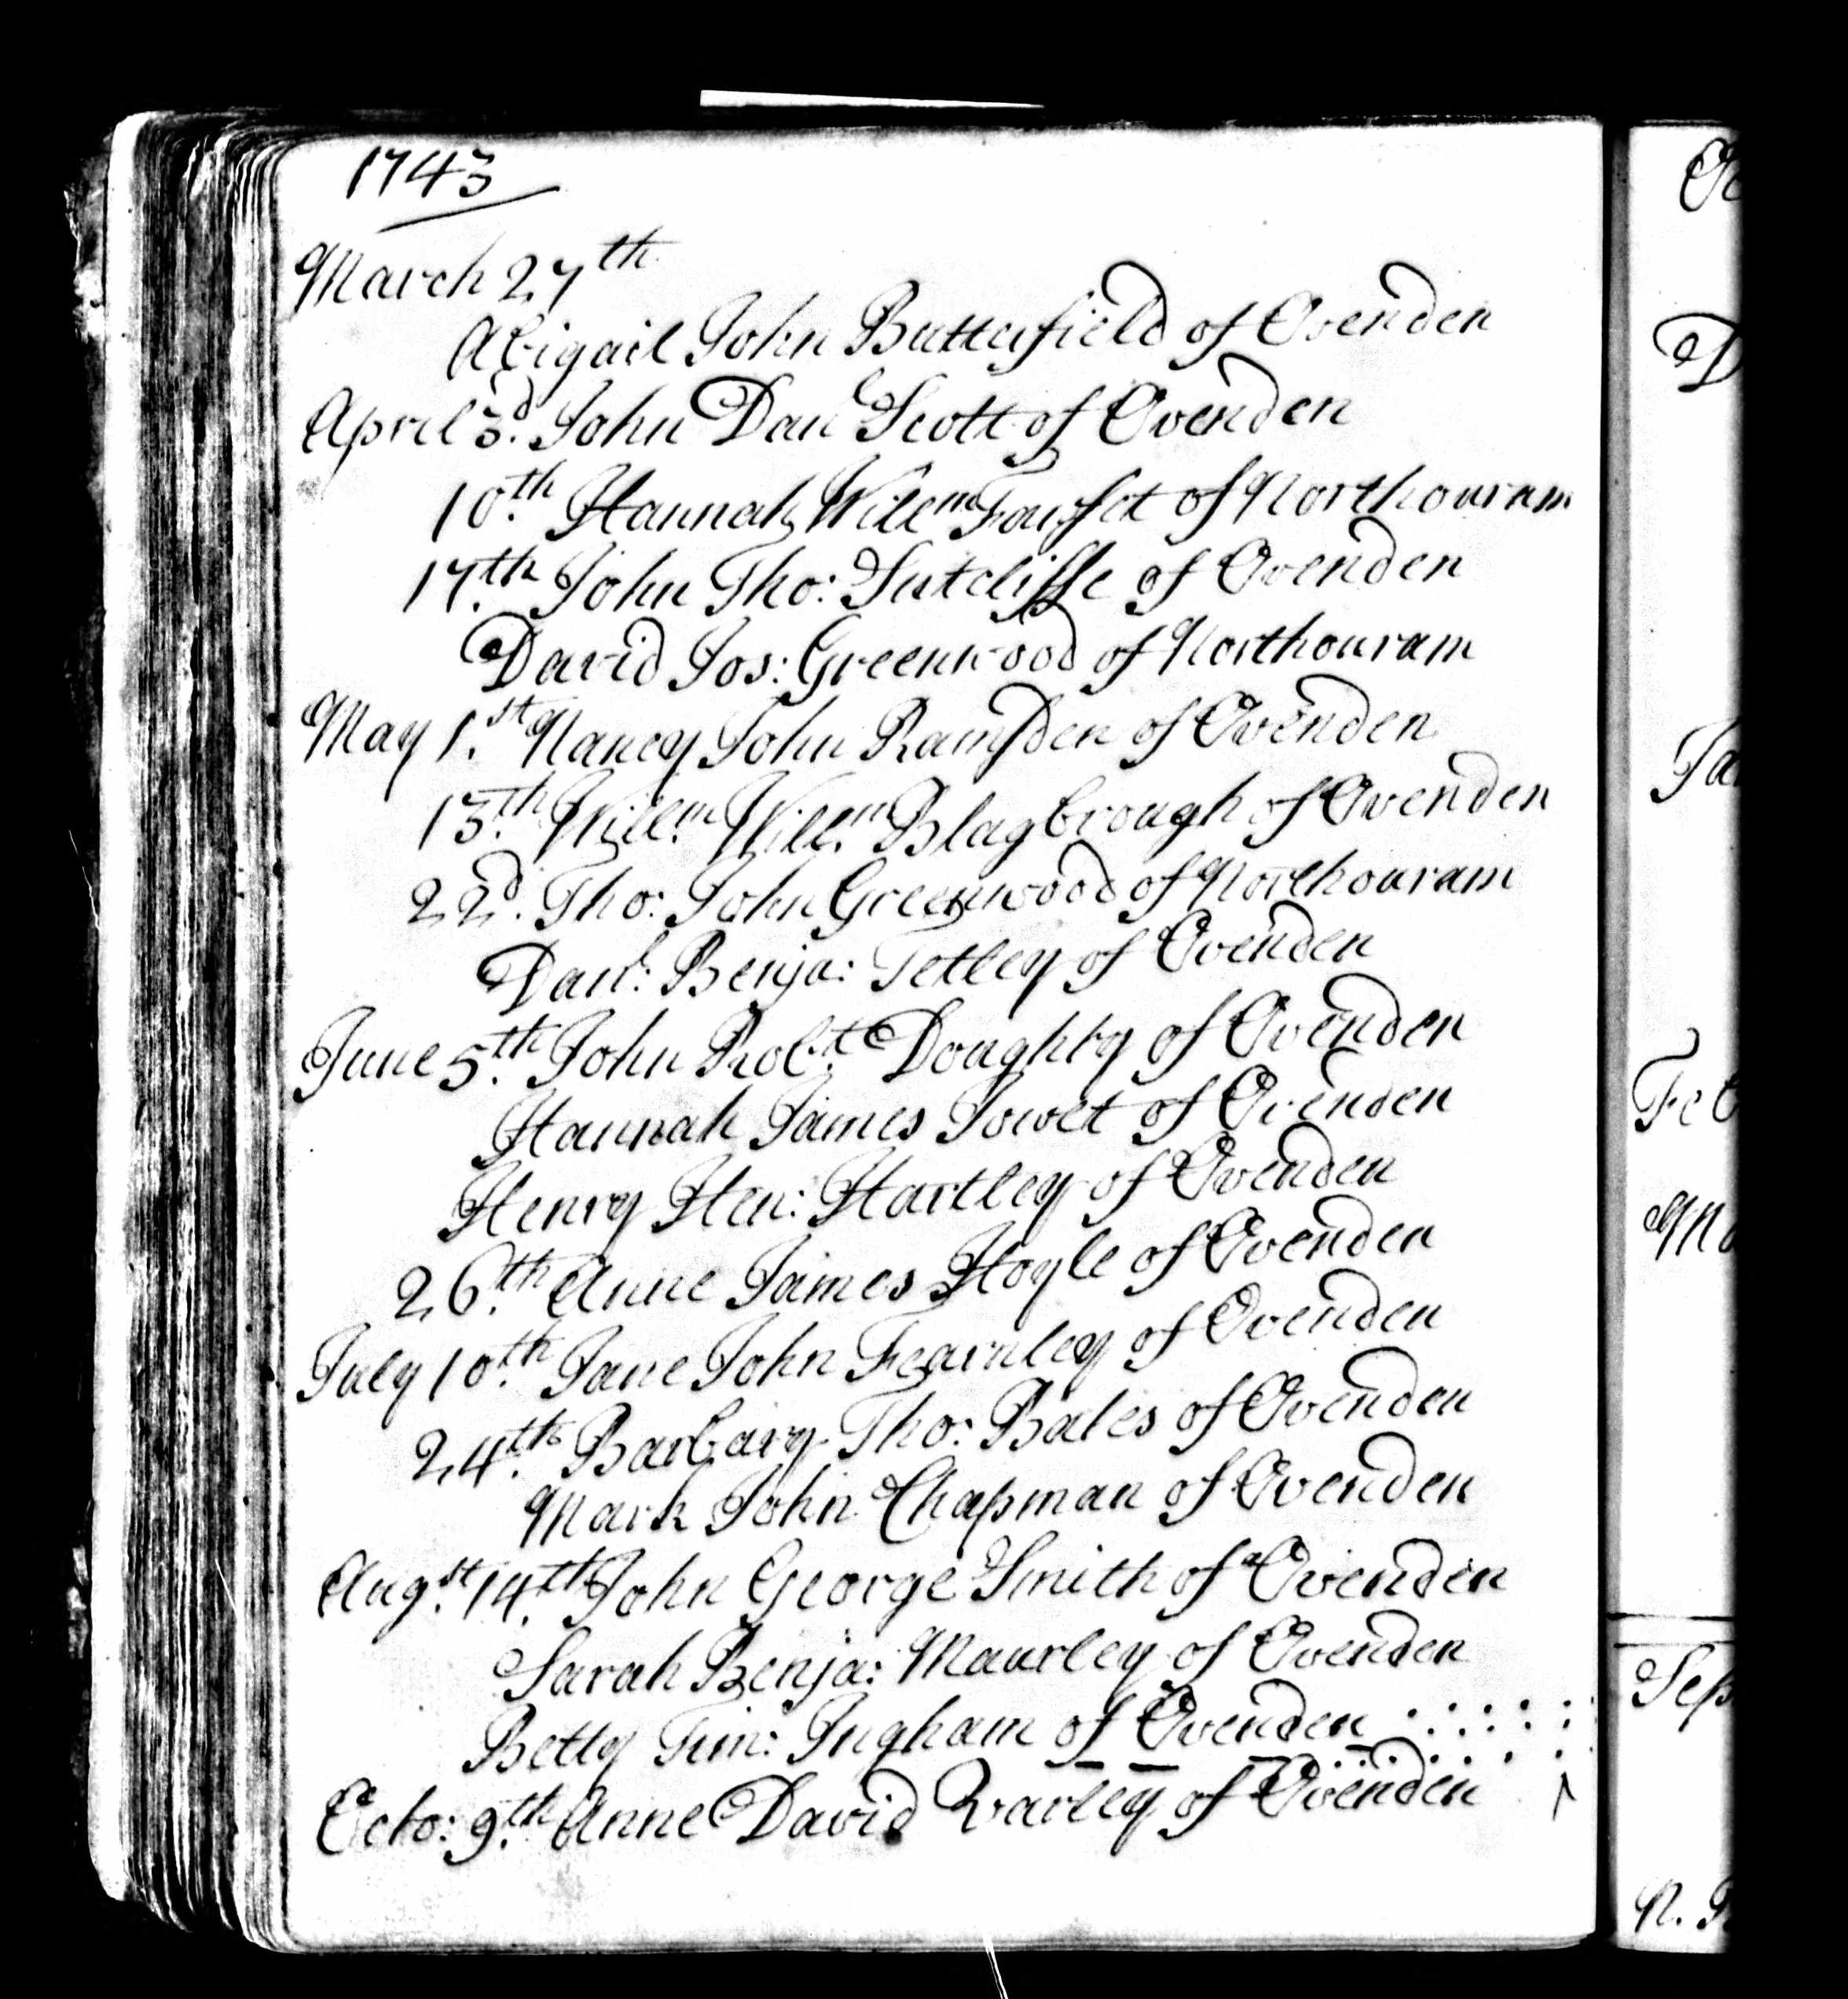 1743
March 27th
Abigail John Butterfield of Ovenden
April 3d. John Danl Scott of Ovenden
10th. Hannah Willm Fousset of Northouram
17.th John Tho: Sutcliffe of Ovenden
David Jos: Greenwood of Northouram
May 1.st Nancy John Ramsden of Ovenden
15.th Will.m Will.m Blagbrough of Ovenden
22d. Tho: John Greenwood of Northouram
Danl: Benja: Tetley of Ovenden
June 5.th John Rob.t Doughty of Ovenden
Hannah James Jowet of Ovenden
Henry Hen: Hartley of Ovenden
26.th Anne James Hoyle of Ovenden
July 10.th Jane John Fearnley of Ovenden
24.th Barbary Tho: Bates of Ovenden
Mark John Chapman of Ovenden
Aug.st 14.th John George Smith of Ovenden
Sarah Benja: Maurley of Ovenden
Betty Tim: Ingham of Ovenden
Octo: 9.th Anne David Varley of Ovenden